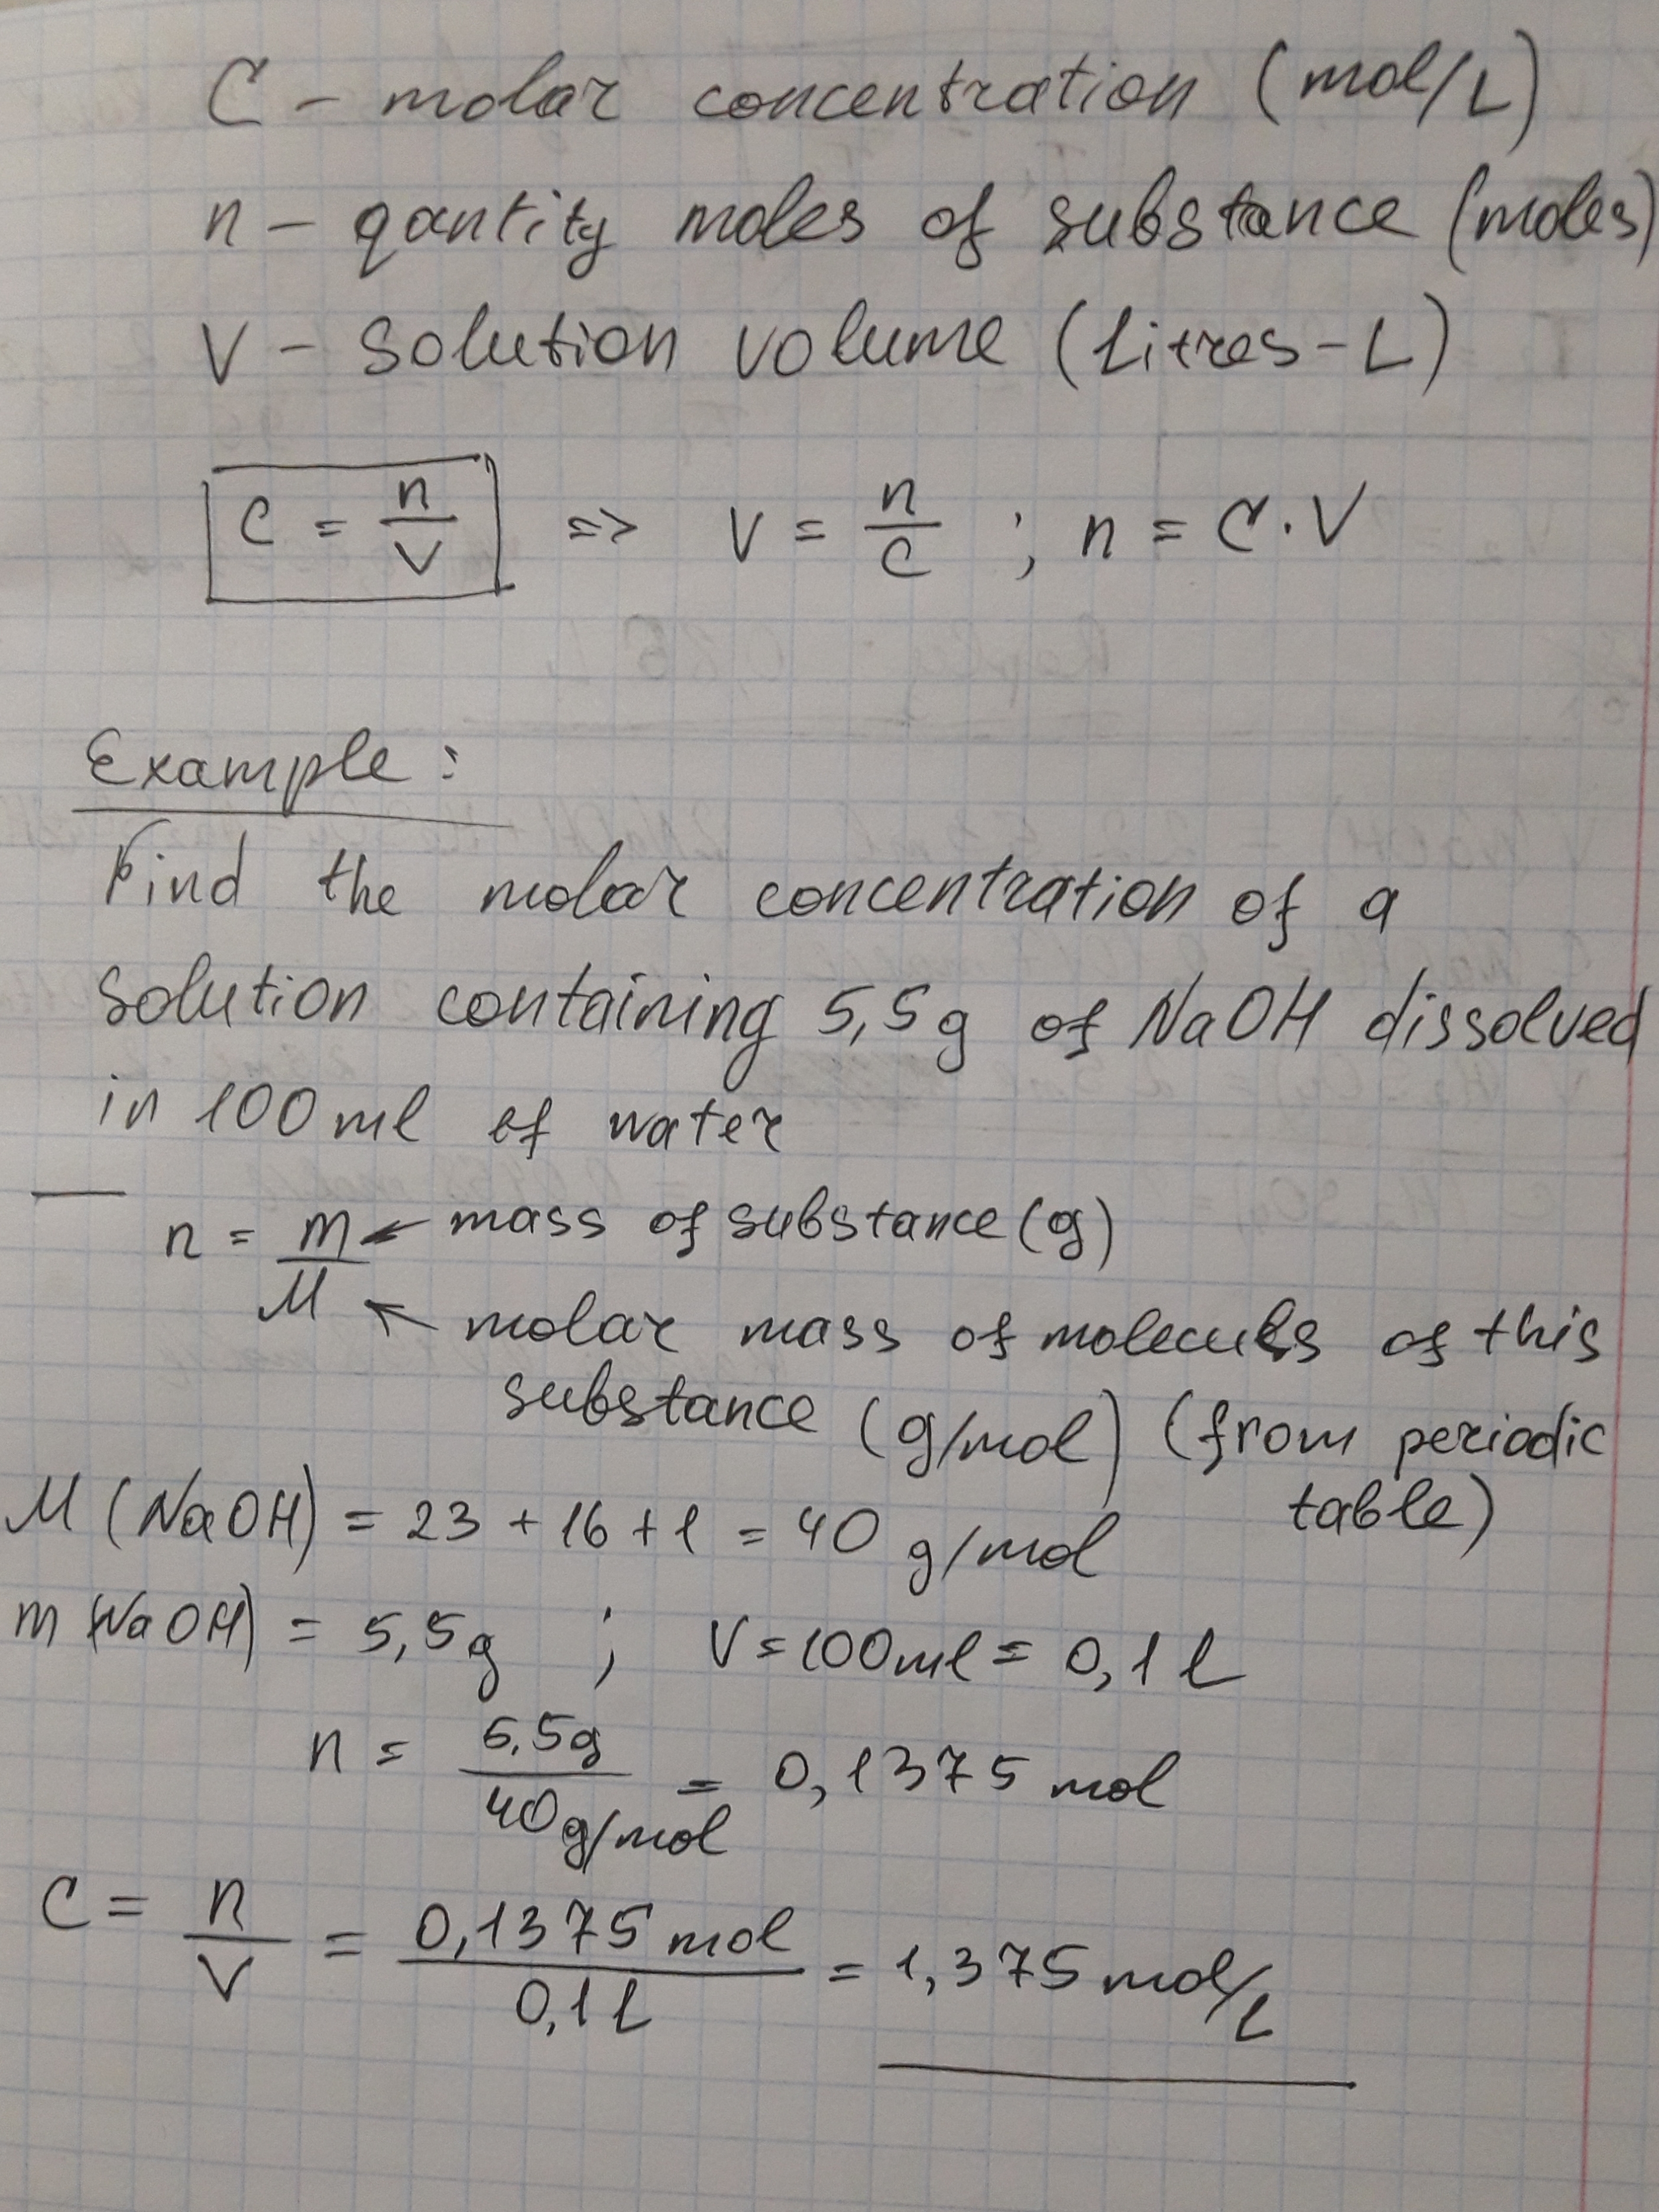 C - molar concentration (mol/L)
n - qantity moles of substance (moles)
V - solution volume (litres - L)
C = n/V => V = n/C ; n = C · V
Example:
Find the molar concentration of a
solution containing 5,5g of NaOH dissolved
in 100 ml of water
n = m/M ← mass of substance (g)
← molar mass of molecules of this
substance (g/mol) (from periodic
table)
M (NaOH) = 23 + 16 + 1 = 40 g/mol
m (NaOH) = 5,5g ; V = 100 ml = 0,1 l
n = 5,5g / 40 g/mol = 0,1375 mol
C = n/V = 0,1375 mol / 0,1 L = 1,375 mol/L